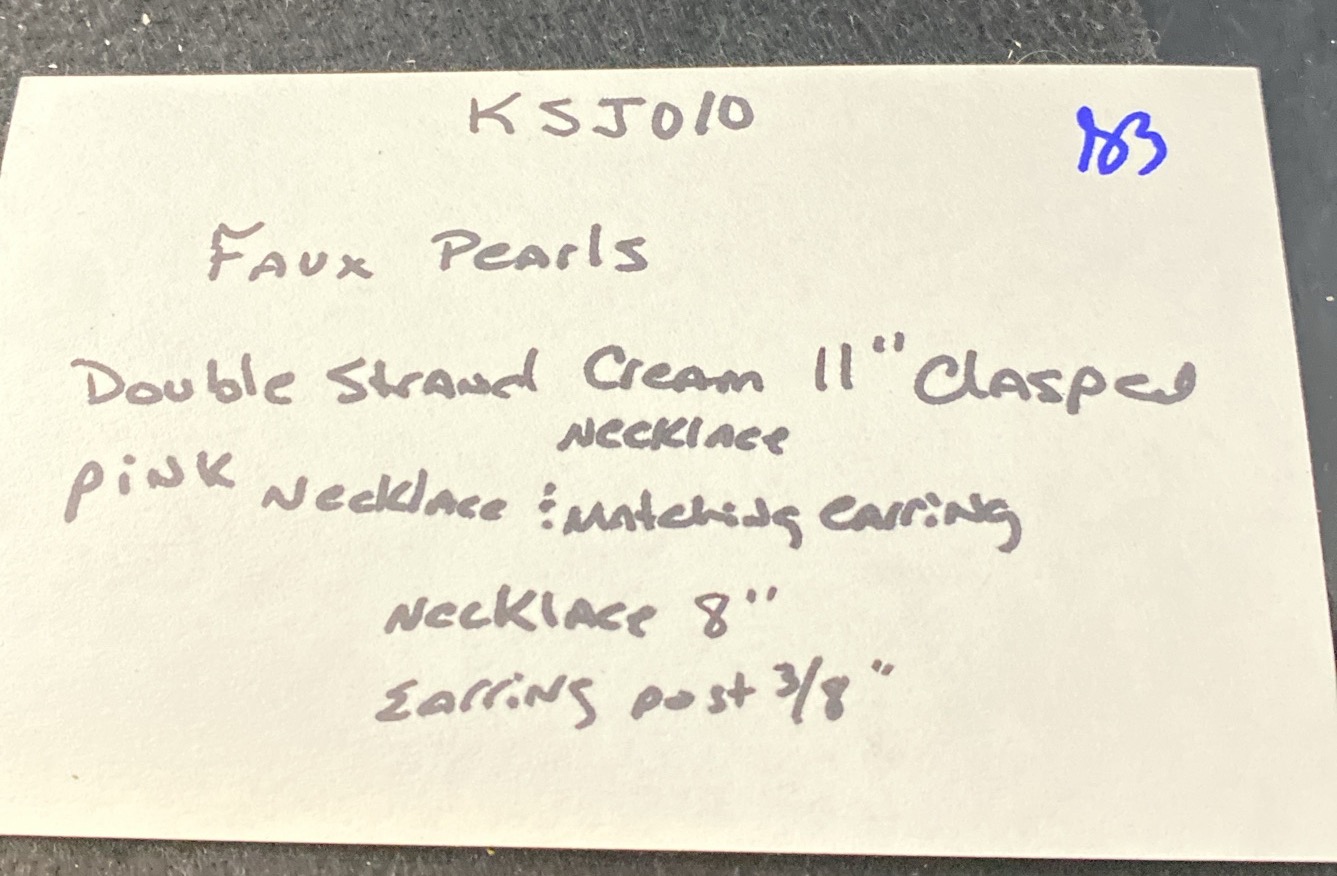 KSJ010
183
Faux Pearls
Double Strand Cream 11" Clasped
Necklace
Pink Necklace & Matching Earring
Necklace 8"
Earring post 3/8"